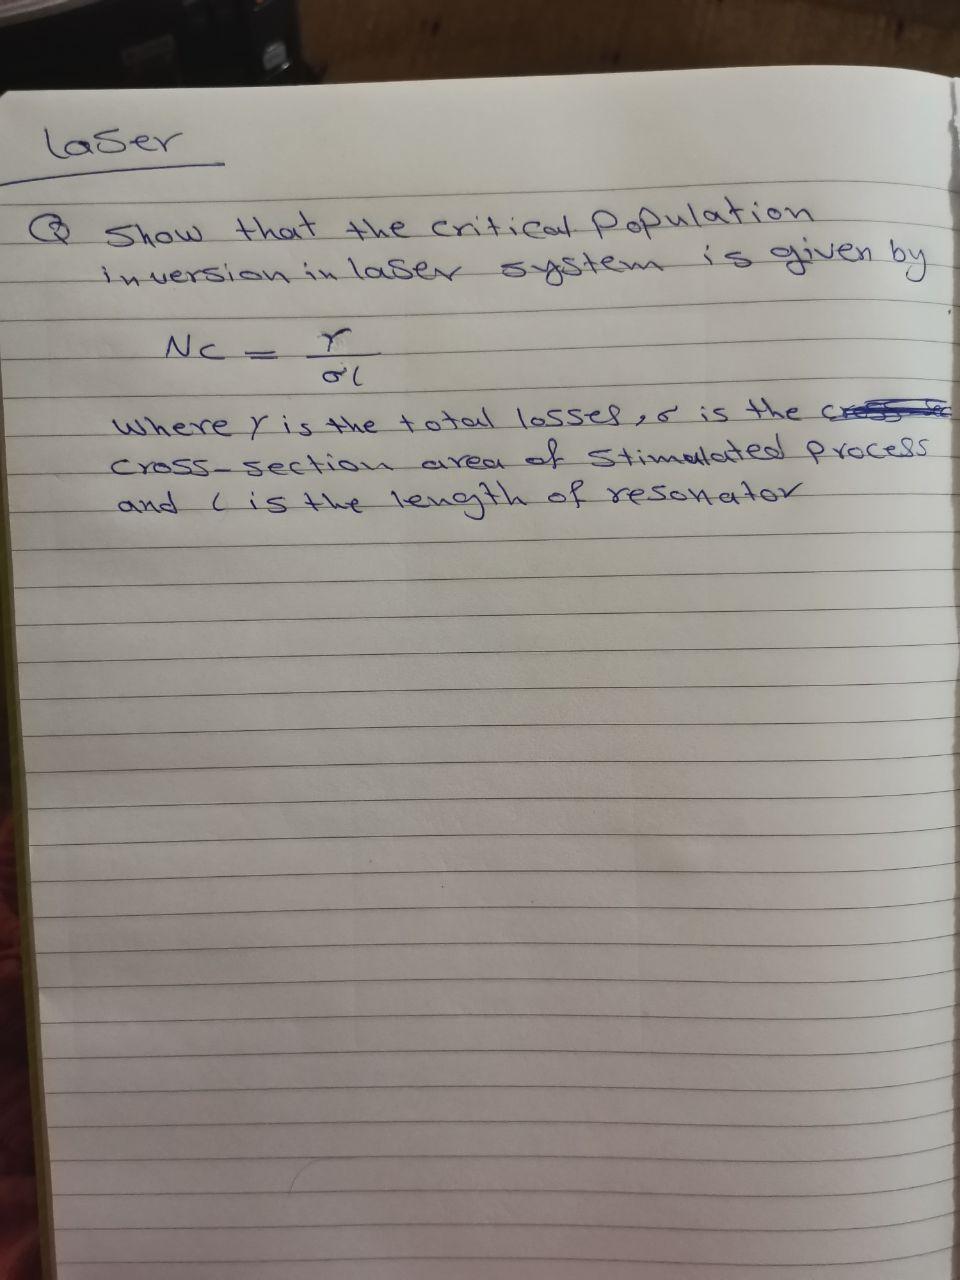 Laser
Q Show that the critical Population
inversion in laser system is given by
Nc = γ
σl
where γ is the total losses, σ is the
cross-section area of stimulated process
and l is the length of resonator